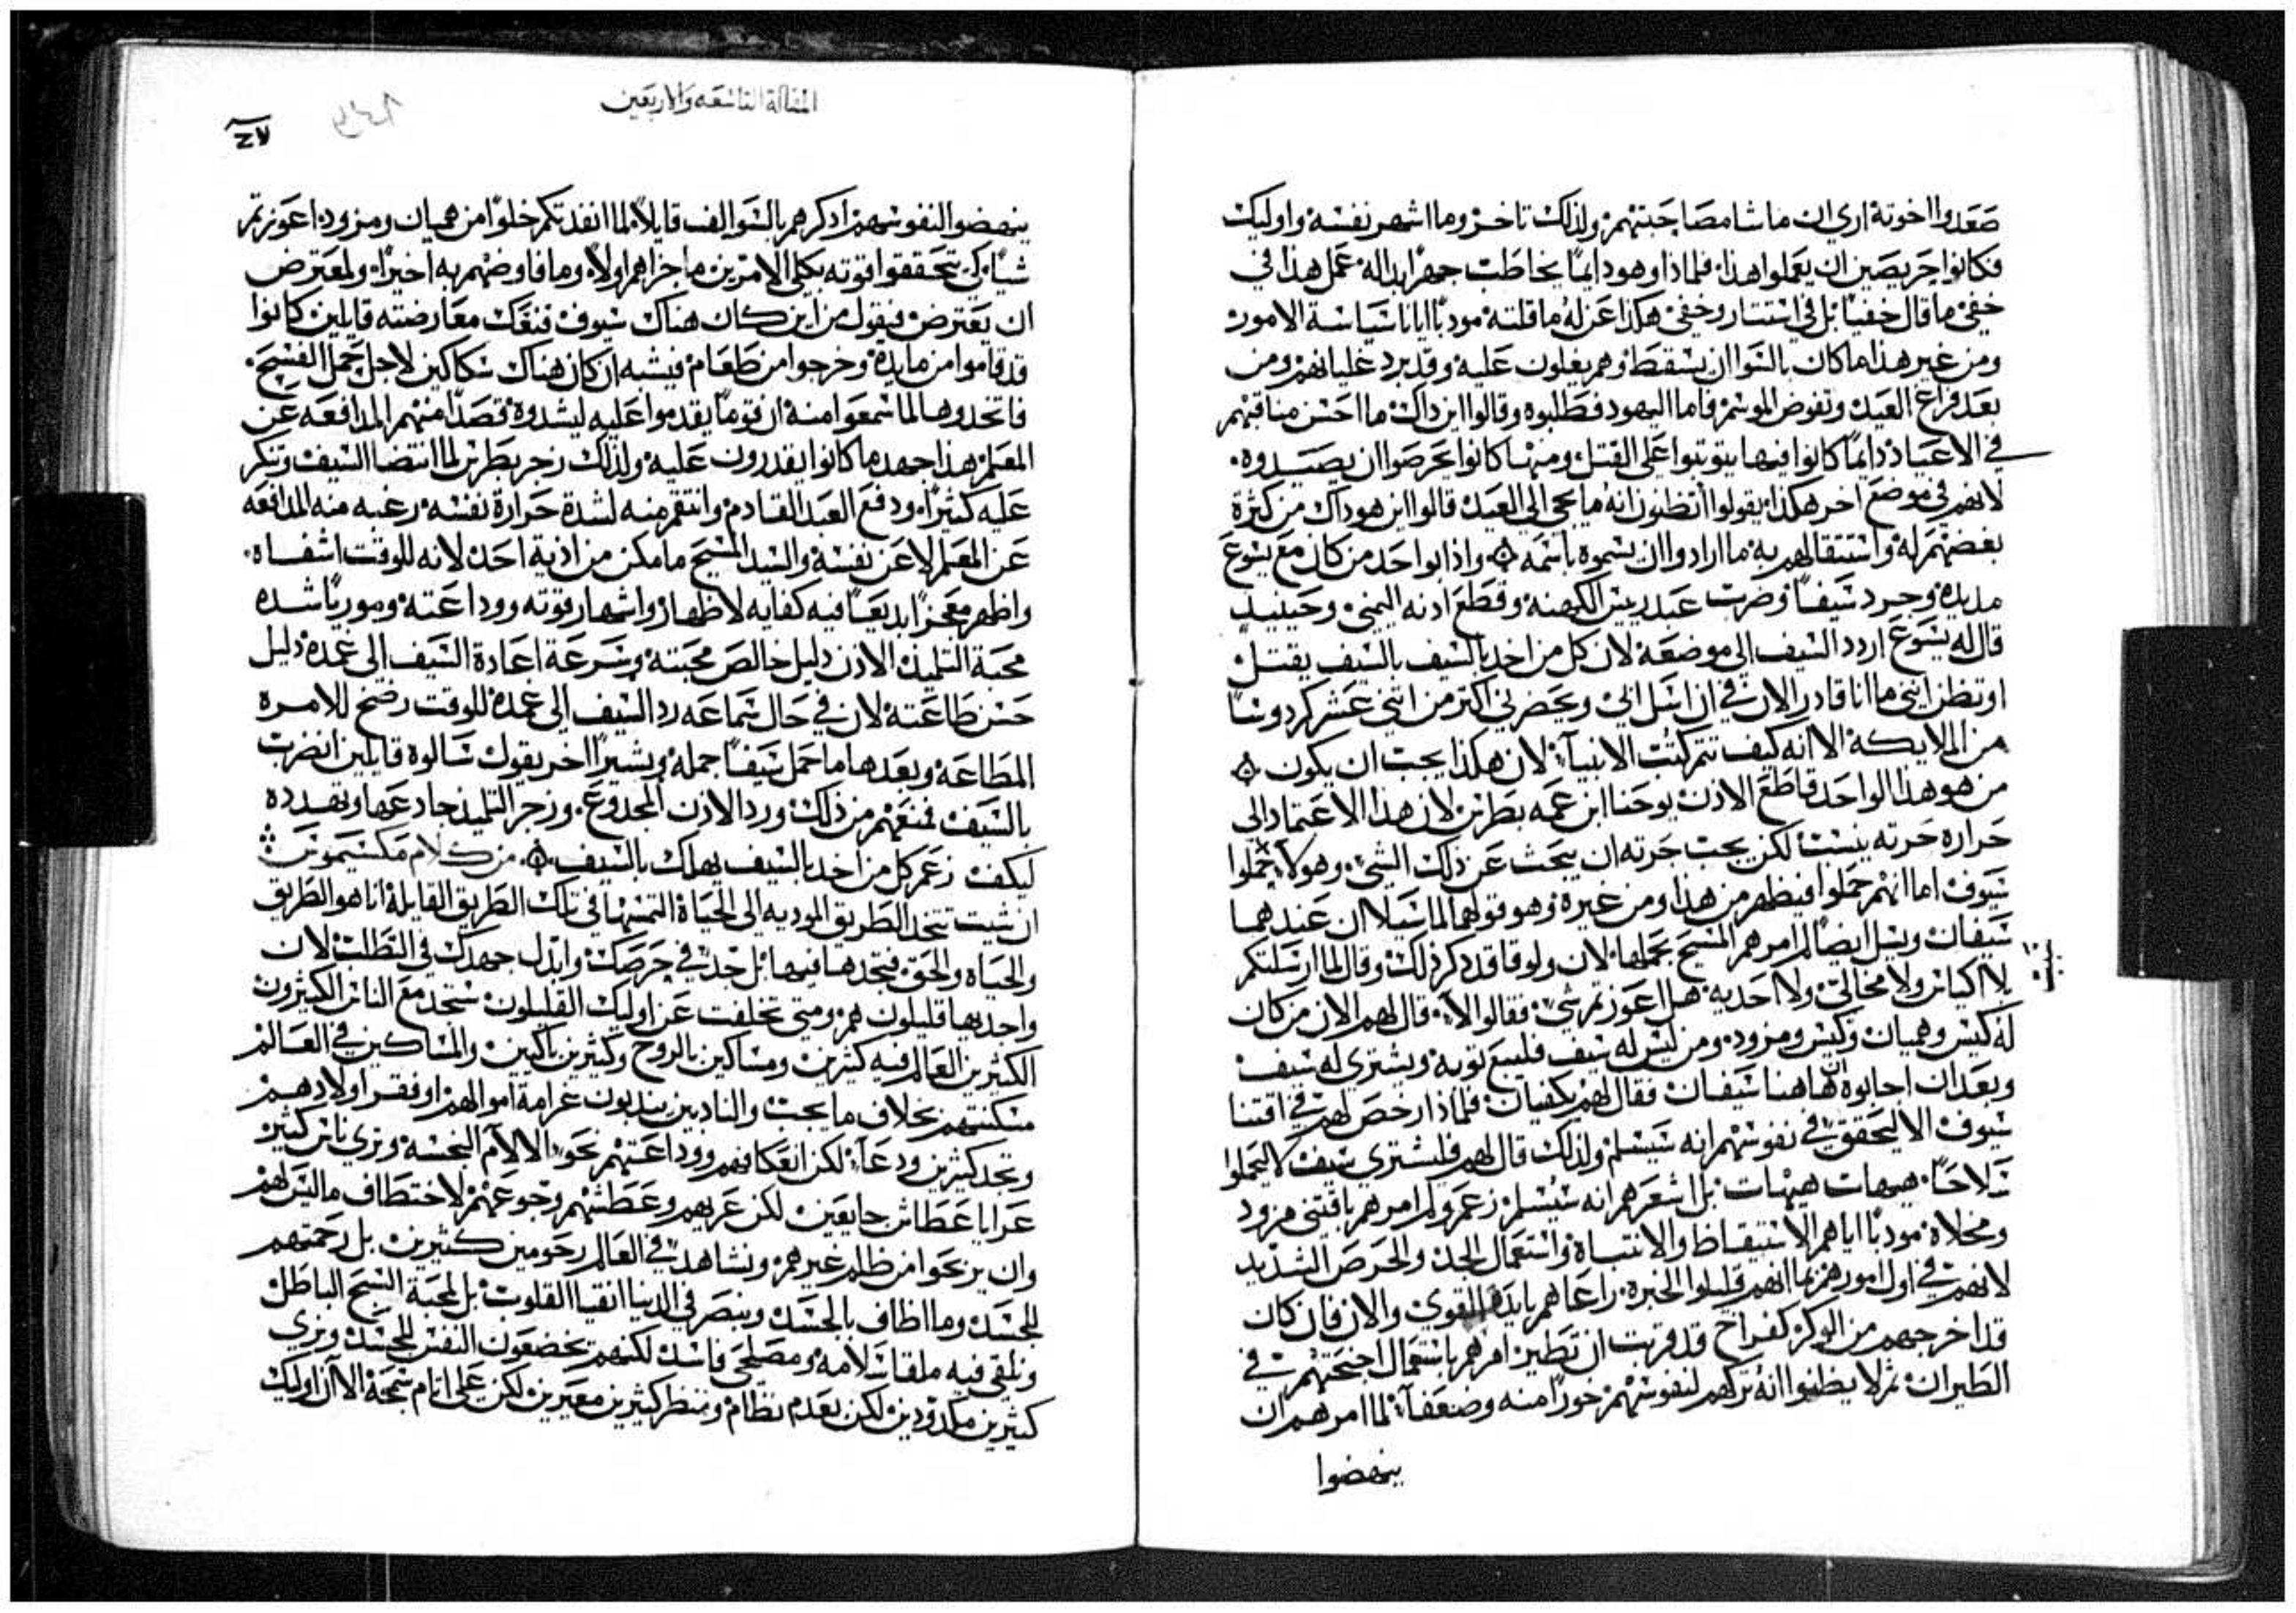 صعدوا اخوته اري ان ماشا مصاحبتهم ولذلك تاخر وما اشهر نفسه واوليك
فكانوا حريصين ان يعملوا هذا فلماذا وهو دايمًا يخاطب جهرًا بدالة عمل هذا في
خفي ما قال خفيًا بل في استتار وخفي هكذا عزله ما قلته مودبًا ايانا سياسة الامور
ومن غير هذا ما كان بالتوا ان يسقط وهم يغلون عليه وقد برد غليانهم ومن
بعد فراغ العيد وتفوض الموسم فاما اليهود فطلبوه وقالوا اين ذاك ما احسن مناقبهم
في الاعياد دايمًا كانوا فيها يتوثبوا على القتل ومنها كانوا يحرصوا ان يصيدوه
لانهم في موضع اخر هكذا يقولوا اتظنون انه ما يجي الى العيد قالوا اين هو ذاك من كثرة
بغضهم له واستتقالهم به ما ارادوا ان يسموه باسمه واذا بواحد من كان مع يسوع
مد يده وجرد سيفًا وضرب عبد ريس الكهنة وقطع ادنه اليمني وحينيد
قال له يسوع اردد السيف الى موضعه لان كل من اخد بالسيف بالسيف يقتل
او تظن انني ما انا قادر الان في ان اسل ابي ويحضر لي اكتر من اتني عشر كردوسًا
من الملايكة الا انه كيف تتم كتب الانبيآء لان هكذا يجب ان يكون
من هو هذا الواحد قاطع الادن يوحنا ابن عمه بطرس لان هذا الاعتماد الى
حرارة حرته ينسب لكن يجب حرته ان يبحث عن ذلك الشي وهولا حملوا
سيوف اما انهم حملوا فيظهر من هذا ومن غيره وهو قولهم لما سيلا ان عندهما
سيفان ويسل ايضًا لم امرهم المسيح بحملها لان ولوقا قد ذكر ذلك وقال لما ارسلتكم
بلا اكياس ولا مخالي ولا احديه هل اعوزتم شي فقالوا لا قال لهم الان من كان
له كيس وهميان وكيس ومزود ومن ليس له سيف فليبع توبه ويشتري له سيف
وبعد ان اجابوه ها هنا سيفان فقال لهم يكفيان فلماذا رخص لهم في اقتنا
سيوف الا ليحقق في نفوسهم انه سيسلم ولذلك قال لهم فليشتري سيف لا ليحملوا
سلاحًا هيهات هيهات بل اشعرهم انه سيسلم زعم ولم امرهم باقتني مزود
ومخلاة مودبًا اياهم الاستيقاظ والانتباه واستعمال الجد والحرص الشديد
لانهم في اول امورهم بما انهم قليلوا الخبره راعاهم بايده القوي والان فان كان
قد اخرجهم من الوكر كفراخ قد قربت ان تطير امرهم باستعمال اجنحتهم في
الطيران ثم لا يظنوا انه تركهم لنفوسهم خورًا منه وضعفآ لما امرهم ان
ينهضوا
المقالة التاسعه والاربعين
ينهضوا لنفوسهم ادكرهم بالسوالف قايلًا لما انفدتكم خلوًا من هميان ومزود اعوزتم
شيًا كي تتحققوا قوته بكلي الامرين ما جزاهم اولًا وما فاوضهم به اخيرًا ولمعترض
ان يعترض فيقول من اين كان هناك سيوف فنفك معارضته قايلين كانوا
قد قاموا من مايده وخرجوا من طعام فيشبه ان كان هناك سكاكين لاجل حمل الفسح
فاتخدوها لما سمعوا منه ان قومًا يقدموا عليه ليشدوه قصدًا منهم المدافعه عن
المعلم هذا جهد ما كانوا يقدرون عليه ولذلك زجر بطرس لما انتضا السيف وتنكر
عليه كثيرًا ودفع العبد القادم وانتقم منه لشدة حرارة نفسه رغبه منه المدافعه
عن المعلم لا عن نفسه والسيد المسيح ما مكن من اذية احد لانه للوقت اشفاه
واظهر معجزًا بديعًا فيه كفايه لاظهار واشهار قوته ووداعته ومورّيًا شده
محبة التلميذ الادن دليل خالص محبته وسرعة اعادة السيف الى غمده دليل
حسن طاعته لان في حال سماعه رد السيف الى غمده للوقت رضخ للامره
المطاعه وبعدها ما حمل سيفًا جمله وبشيرًا اخر يقول سالوه قايلين انضرب
بالسيف فمنعهم من ذلك ورد الادن المجدوع وزجر التلميذ رادعها وتهدده
ليكف زعم كل من اخد بالسيف يهلك بالسيف من كلام مكسيموس
ان شيت تتجد الطريق الموديه الى الحياة التمسها في تلك الطريق القايلة انا هو الطريق
والحياه والحق فتجدها فيها بل جد في حرصك وابدل جهدك في الطلب لان
واجديها قليلون هم ومتى تخلفت عن اوليك القليلون ستجد مع الناس الكيترون
الكثيرين العالم فيه كثيرين ومساكين بالروح وكثيرين باكيين والمساكين في العالم
مسكنتهم بخلاف ما يجب والنادبين يندبون غرامة اموالهم او فقر اولادهم
وتجد كثيرين ودعآ لكن انعكافهم ووداعتهم نحو الالآم النجسه ونري ناس كثير
عرايا عطاش جايعين لكن عريهم وعطشهم وجوعهم لاختطاف ما ليس لهم
وان يربحوا من ظلم غيرهم ونشاهد في العالم رحومين كثيرين بل رحمتهم
للجسد وما اطاف بالجسد ونبصر في الدنيا انقيا القلوب بل لمحبة السبح الباطل
ونلقى فيه ملقا سلامه ومصلحي فاسد لكنهم يخضعون النفس للجسد ونري
كثيرين مكدودين لكن بعدم نظام وننظر كثيرين معيرين لكن على اتام سمجة الا ان اوليك